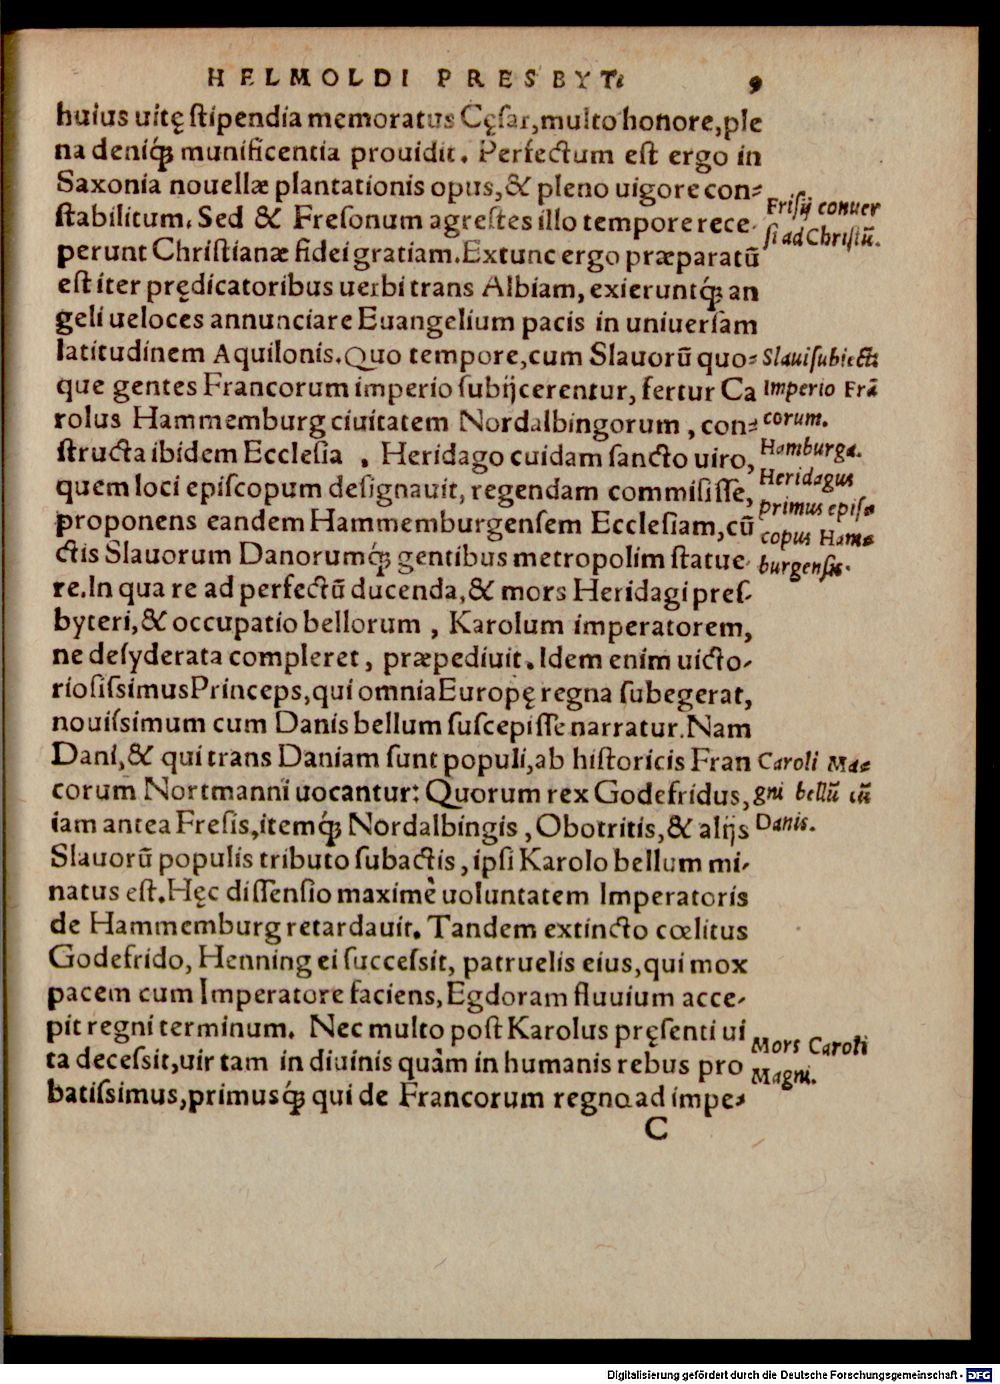 HELMOLDI PRESBYT. 9
huius uitę ſtipendia memoratus Cęſar, multo honore, ple
na deniq́ꝫ munificentia prouidit. Perfectum eſt ergo in
Saxonia nouellæ plantationis opus, & pleno uigore con-
ſtabilitum. Sed & Freſonum agreſtes illo tempore rece-
perunt Chriſtianæ fidei gratiam. Extunc ergo præparatū
eſt iter prędicatoribus uerbi trans Albiam, exieruntq́ꝫ an
geli ueloces annunciare Euangelium pacis in uniuerſam
latitudinem Aquilonis. Quo tempore, cum Slauorū quo-
que gentes Francorum imperio ſubijcerentur, fertur Ca
rolus Hammemburg ciuitatem Nordalbingorum, con-
ſtructa ibidem Eccleſia, Heridago cuidam ſancto uiro,
quem loci epiſcopum deſignauit, regendam commiſiſſe,
proponens eandem Hammemburgenſem Eccleſiam, cū
ctis Slauorum Danorumq́ꝫ gentibus metropolim ſtatue-
re. In qua re ad perfectū ducenda, & mors Heridagi preſ-
byteri, & occupatio bellorum, Karolum imperatorem,
ne deſyderata compleret, præpediuit. Idem enim uicto-
rioſiſsimus Princeps, qui omnia Europę regna ſubegerat,
nouiſsimum cum Danis bellum ſuſcepiſſe narratur. Nam
Dani, & qui trans Daniam ſunt populi, ab hiſtoricis Fran
corum Nortmanni uocantur: Quorum rex Godefridus,
iam antea Freſis, itemq́ꝫ Nordalbingis, Obotritis, & alijs
Slauorū populis tributo ſubactis, ipſi Karolo bellum mi-
natus eſt. Hęc diſſenſio maximè uoluntatem Imperatoris
de Hammemburg retardauit. Tandem extincto cœlitus
Godefrido, Henning ei ſucceſsit, patruelis eius, qui mox
pacem cum Imperatore faciens, Egdoram fluuium acce-
pit regni terminum. Nec multo poſt Karolus pręſenti ui
ta deceſsit, uir tam in diuinis quàm in humanis rebus pro
batiſsimus, primusq́ꝫ qui de Francorum regno ad impe-
C
Friſij conuer
ſi ad Chriſtū.
Slaui ſubiecti
Imperio Frā
corum.
Hamburga.
Heridagus
primus epiſ-
copus Ham-
burgenſis.
Caroli Ma-
gni bellū cū
Danis.
Mors Caroli
Magni.
Digitalisierung gefördert durch die Deutsche Forschungsgemeinschaft - DFG